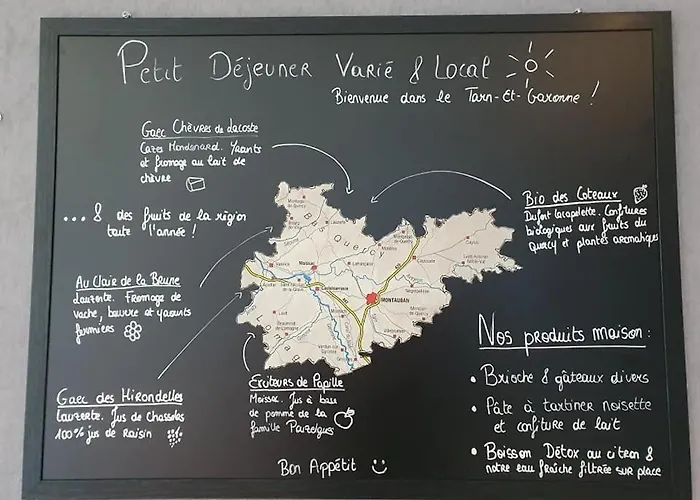 Petit Déjeuner Varié & Local
Bienvenue dans le Tarn-Et-Garonne !
Gaec Chèvres de Lacoste
Cazes Mondenard. Yaourts
et fromage au lait de
chèvre
... & des fruits de la région
toute l'année !
Au Clair de la Brune
Lauzerte. Fromage de
vache, beurre et yaourts
fermiers
Gaec des Hirondelles
Lauzerte. Jus de Chasselas
100% jus de Raisin
Bio des Coteaux
Dufort Lacapelette. Confitures
biologiques aux fruits du
Quercy et plantes aromatiques
Moissac. Jus à base
de pomme de la
famille
Nos produits maison :
• Brioche & gâteaux divers
• Pâte à tartiner noisette
et confiture de lait
• Boisson Détox au citron &
notre eau fraîche filtrée sur place
Bon Appétit
Bas Quercy
Moissac
Castelsarrasin
MONTAUBAN
Valence
Lafrançaise
Caussade
Caylus